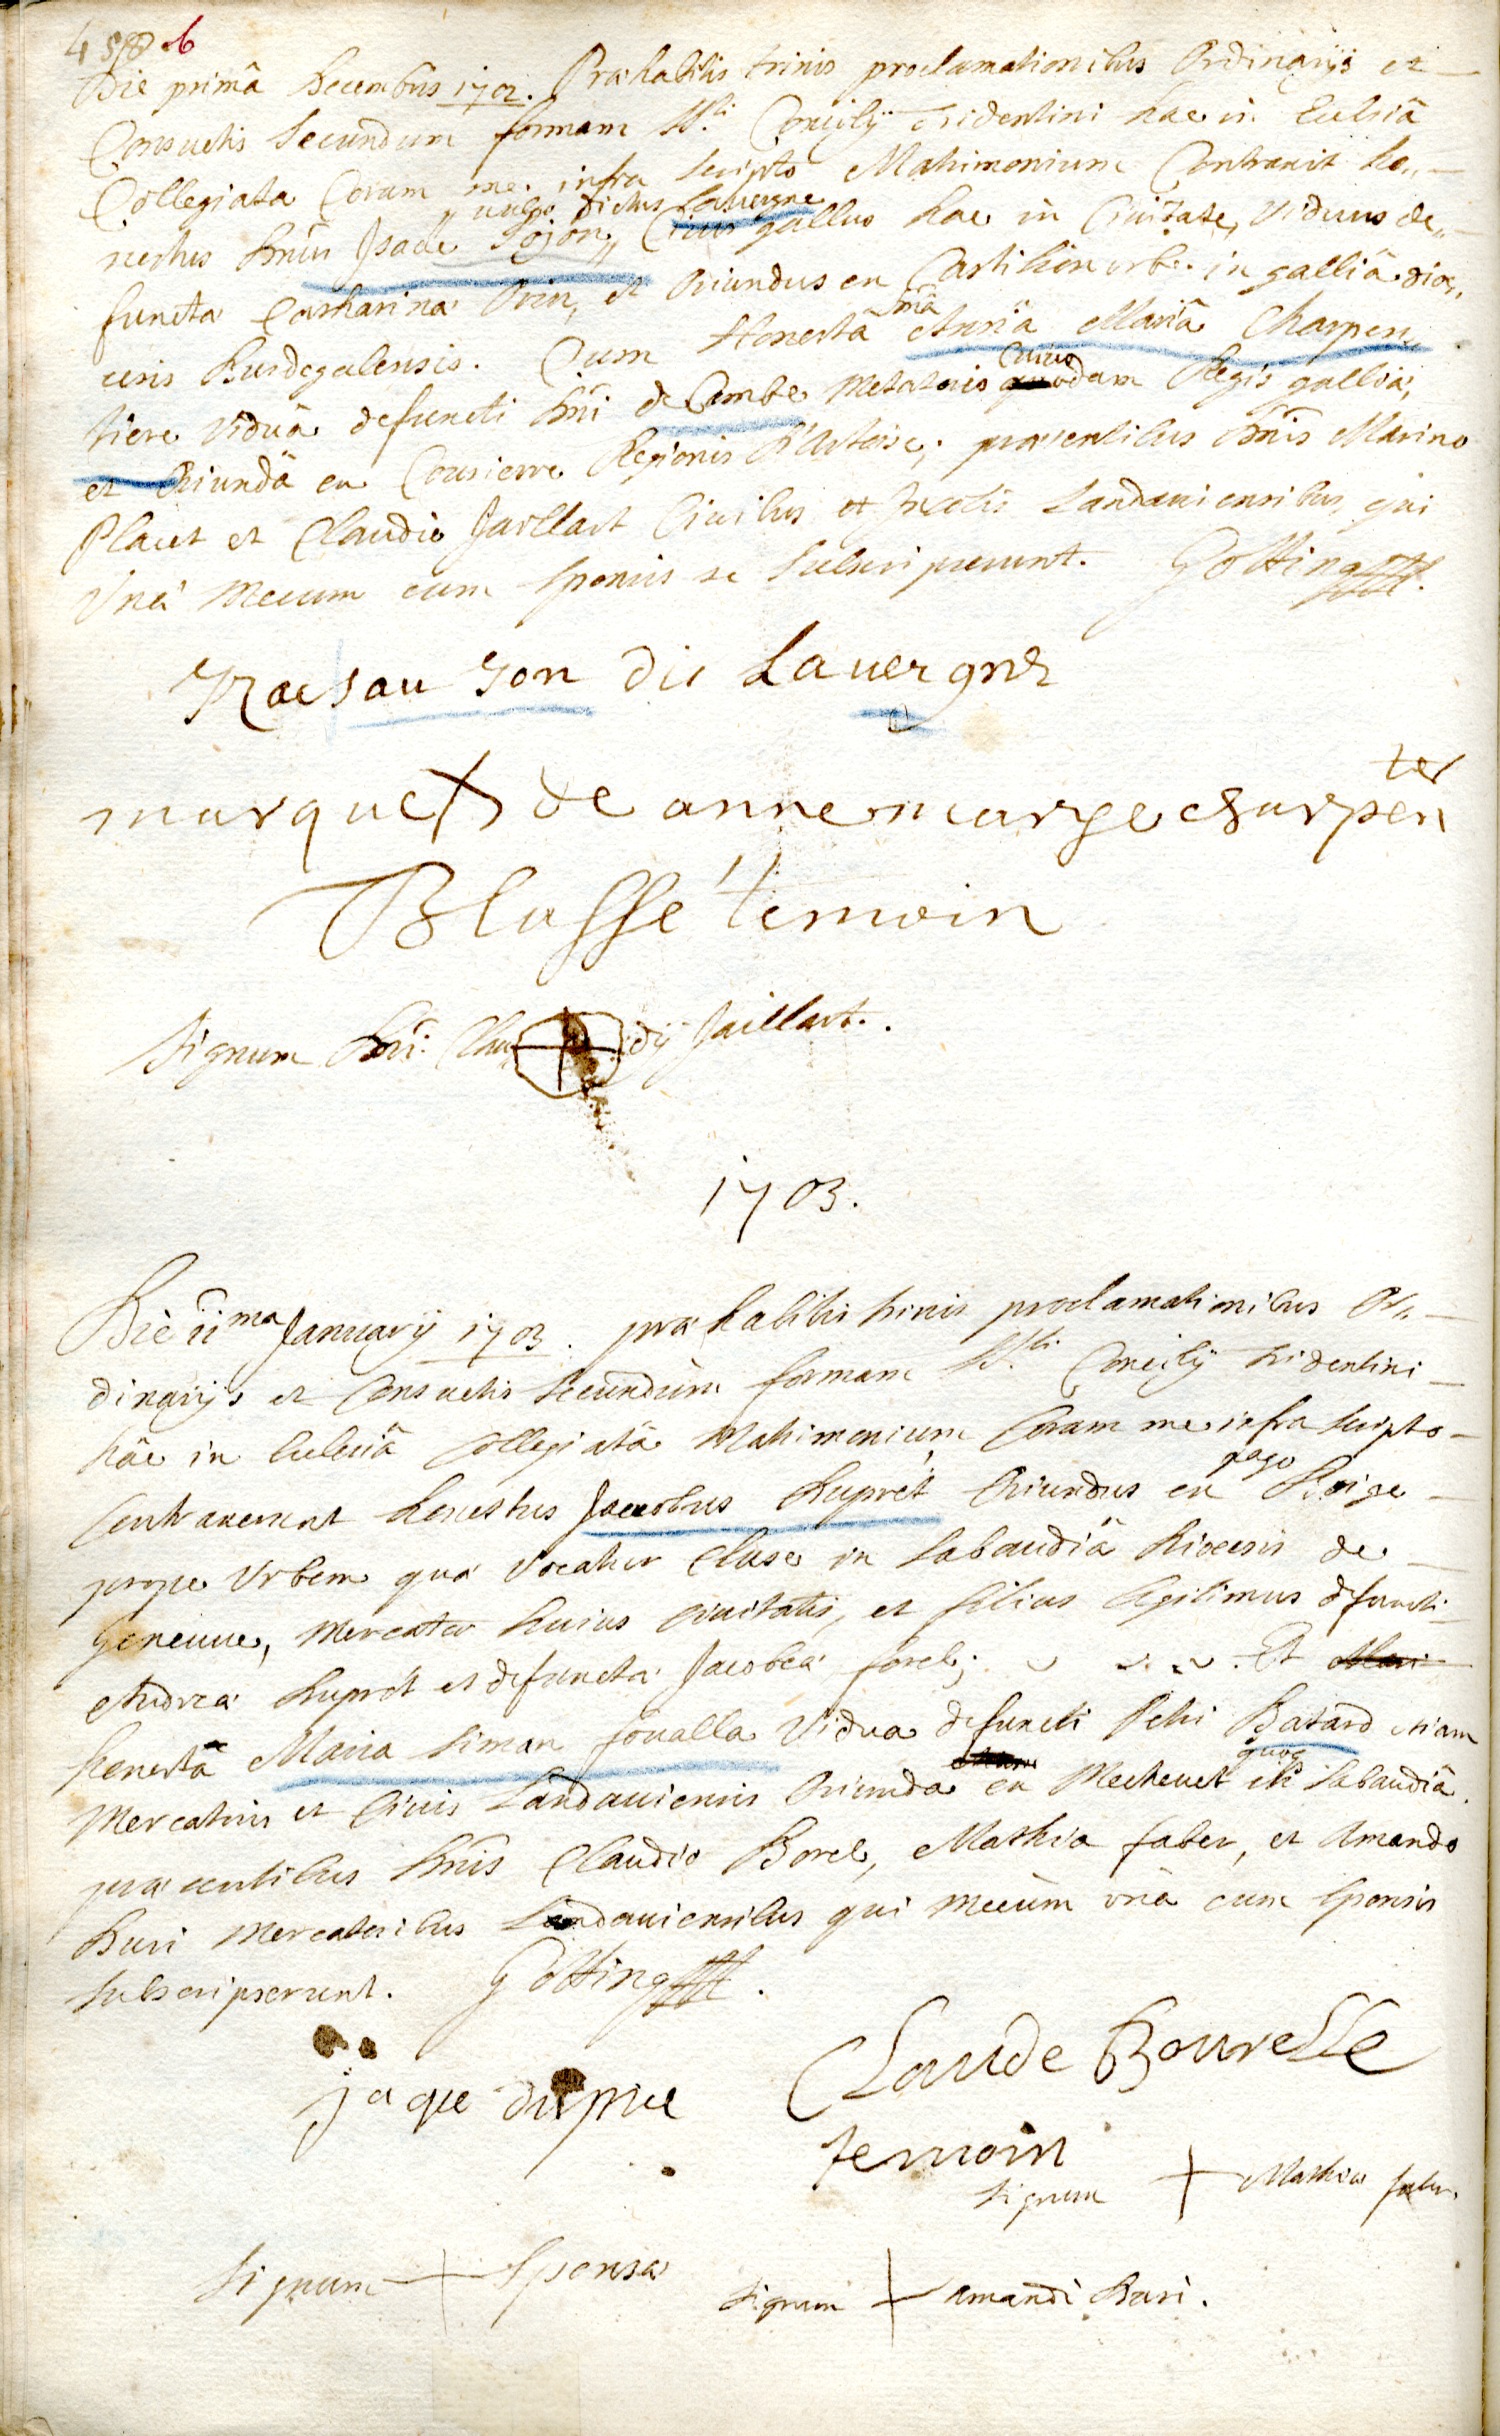 458 b
Die primâ Decembris 1702. Præhabitis trinis proclamationibus Ordinarijs et
Consuetis Secundum formam Ssti Concilij Tridentini hac in Ecclesiâ
Collegiata Coram me infra scripto Matrimonium Contraxit ho„
vulgo dictus Lauergne
nestus Dnus Isaac Sojon, Ciuis gallus hac in Ciuitate, Viduus de„
functæ Catharinæ Orin, et Oriundus ex Castilion urbe in galliâ diœ„
cesis Burdegalensis. Cum Honestâ Annâ Mariâ Charpen„
Cuius
tiere Viduâ defuncti Dni de Combe Metatoris quodam Regis galliæ,
et Oriundâ ex Cousierre Regionis D'Artoise, præsentibus Dnis Marino
Placet et Claudio Jaillart Ciuibus et Incolis Landauiensibus, qui
Vnâ Mecum cum Sponsis se Subscripserunt. Götting
Izac sau Jon dit Lauergne
ter
marque X de anne marye charpen
Blassé temoin
Signum Dni Clau dij Jaillart.
1703.
Die iima Januarij 1703. præhabitis trinis proclamationibus Or„
dinarijs et Consuetis Secundum formam Ssti Concilij Tridentini
hâc in Ecclesiâ Collegiatâ Matrimonium Coram me infra scripto
pago
Contraxerunt honestus Jacobus Dupret Oriundus ex Boige
prope Vrbem quæ Vocatur Cluse in Sabaudiâ Diœcesis de
Geneuue, Mercator huius Ciuitatis, et filius legitimus defuncti
Andreæ Dupret et defunctæ Jacobeæ forel; Et Mari
honestâ Maria Siman foualla Vidua defuncti Petri Batard etiam
quoq
Mercatoris et Ciuis Landauiensis Oriunda ex Mecheuet in Sabaudiâ.
præsentibus Dnis Claudio Borel, Mathia faber, et Amando
Buri Mercatoribus Landauiensibus qui Mecum vnà cum Sponsis
subscripserunt. Götting
jaque dupre
Claude Bourelle
temoin
Signum + Mathiæ faber.
Signum + Sponsæ
Signum + amandi Buri.